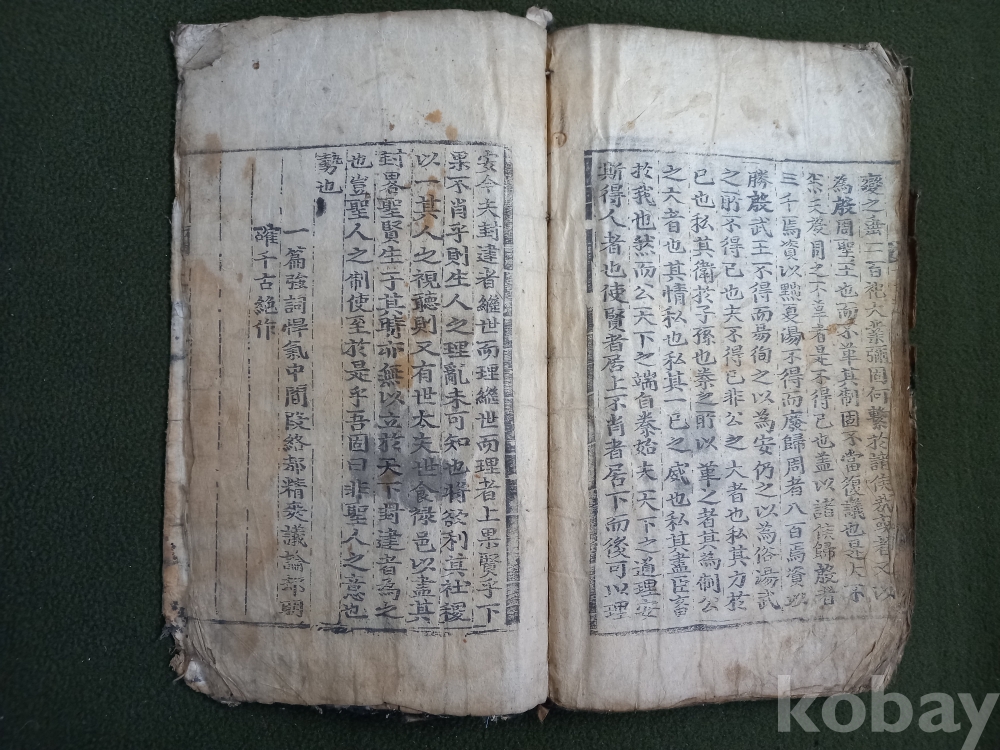 為殷周聖王也而不革其制固不當復議也是大不
然夫殷周之不革者是不得已也盖以諸侯歸殷者
三千焉資以黜夏湯不得而廢歸周者八百焉資以
勝殷武王不得而易徇之以為安仍之以為俗湯武
之所不得已也夫不得已非公之大者也私其力於
已也私其衛於子孫也秦之所以革之者其為制公
之大者也其情私也私其一已之威也私其盡臣畜
於我也然而公天下之端自秦始夫天下之道理安
斯得人者也使賢者居上不肖者居下而後可以理
安今夫封建者繼世而理繼世而理者上果賢乎下
果不肖乎則生人之理亂未可知也將欲利其社稷
以一其人之視聽則又有世大夫世食祿邑以盡其
封畧聖賢生于其時亦無以立於天下封建者為之
也豈聖人之制使至於是乎吾固曰非聖人之意也
勢也
一篇強詞悍氣中間段絡都精麥議論都明
確千古絶作
kobay